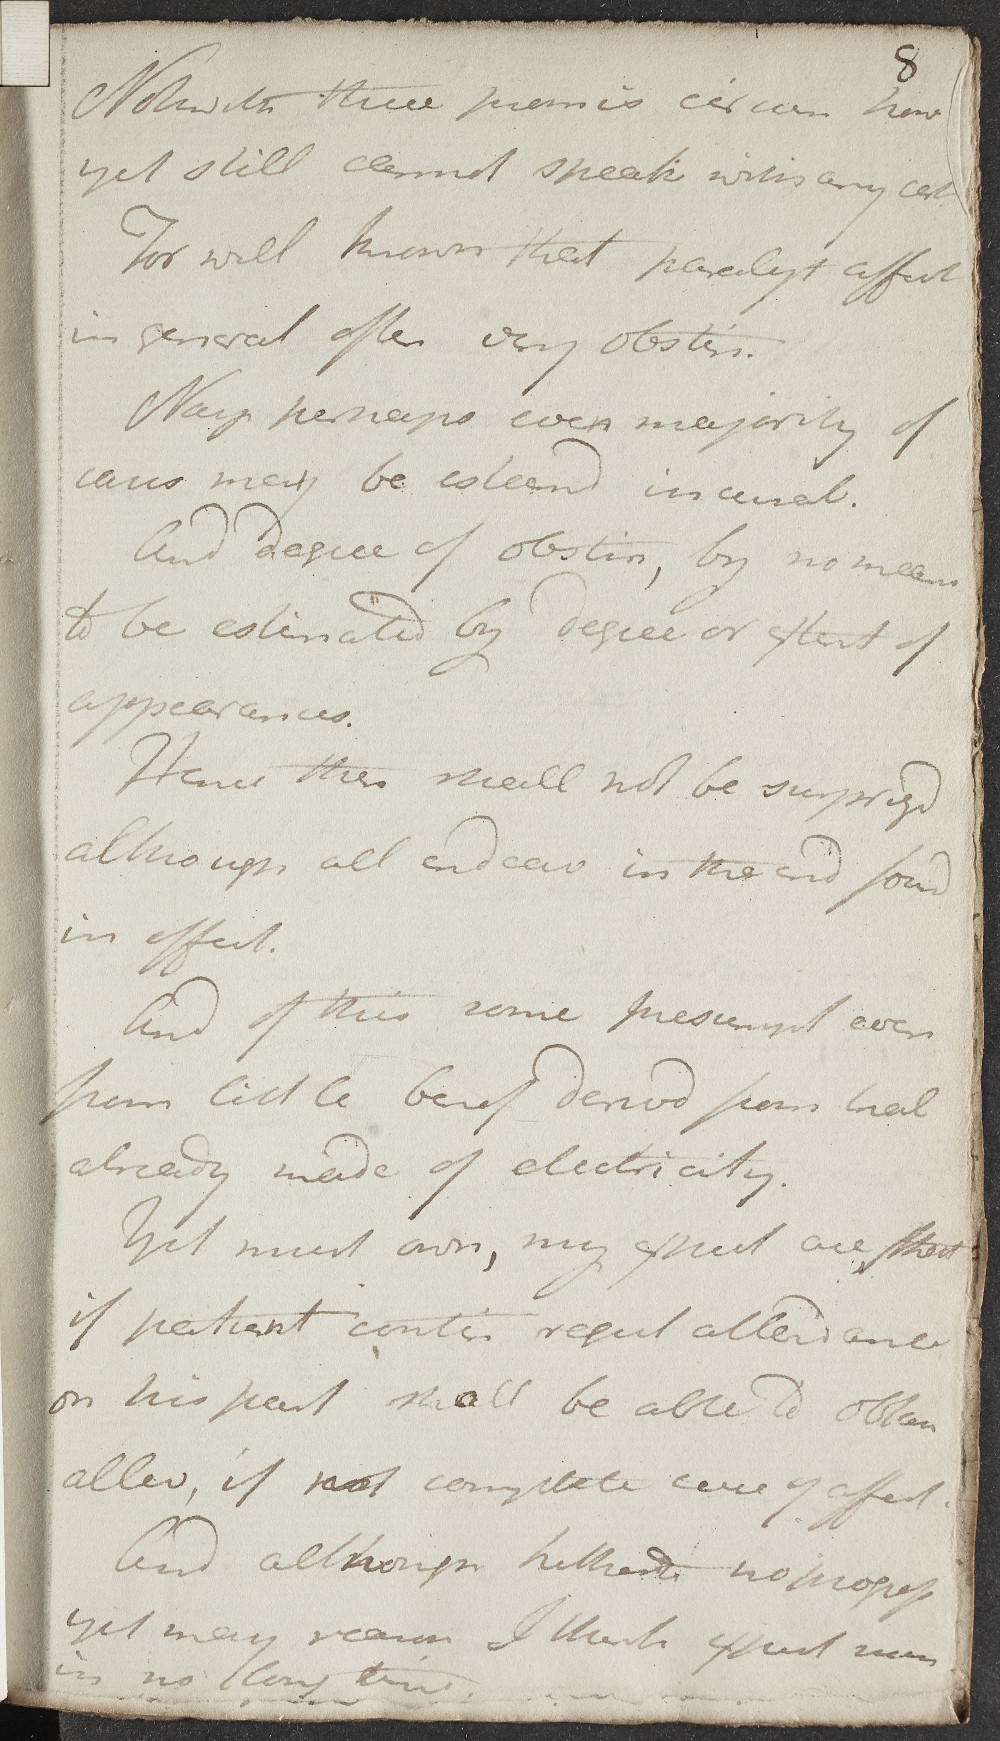 8
Notwith these promis circum how
yet still cannot speak with any cert.
For well known that paralyt affect
in general often very obstin.
Nay perhaps even majority of
cases may be esteemd incurab.
And degree of obstin, by no means
to be estimated by degree or extent of
appearances.
Hence then shall not be surprizd
although all endeav in the end found
in effect.
And of this some presumpt even
from little benef derivd from trial
already made of electricity.
Yet must own, my expect are, that
if patient contin regul attendance
on his part shall be able to obtain
allev, if not complete cure of affect.
And although hitherto no progress
yet may reason I think expect
in no long time.